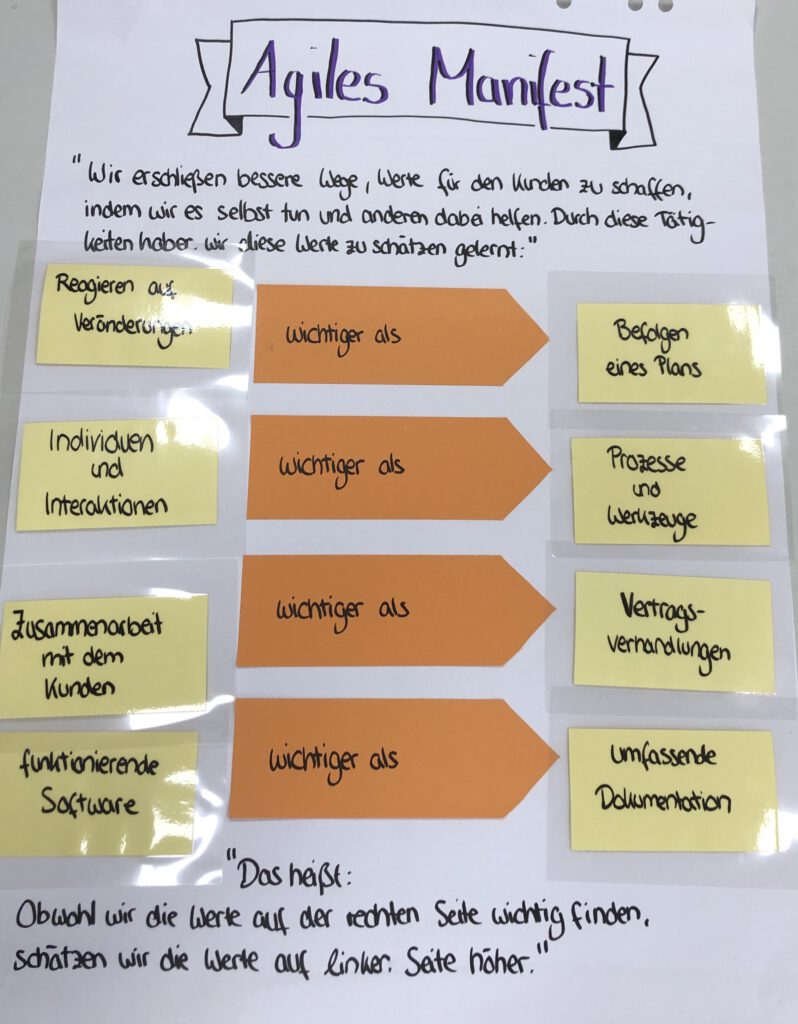 Agiles Manifest
"Wir erschließen bessere Wege, Werte für den Kunden zu schaffen,
indem wir es selbst tun und anderen dabei helfen. Durch diese Tätig-
keiten haben wir diese Werte zu schätzen gelernt:"
Reagieren auf
Veränderungen
wichtiger als
Befolgen
eines Plans
Individuen
und
Interaktionen
wichtiger als
Prozesse
und
Werkzeuge
Zusammenarbeit
mit dem
Kunden
wichtiger als
Vertrags-
verhandlungen
funktionierende
Software
wichtiger als
umfassende
Dokumentation
"Das heißt:
Obwohl wir die Werte auf der rechten Seite wichtig finden,
schätzen wir die Werte auf linker. Seite höher."